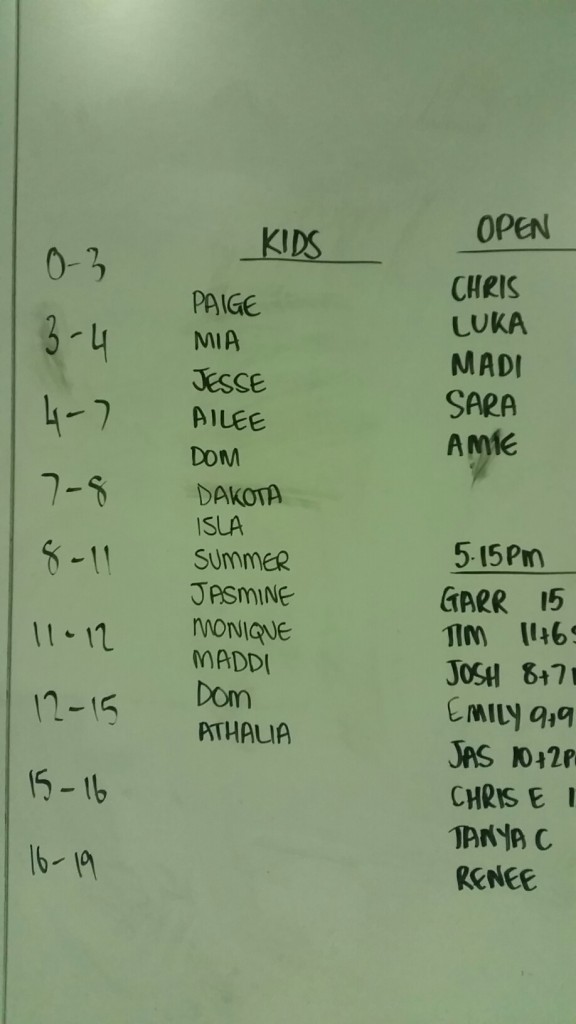 0-3
3-4
4-7
7-8
8-11
11-12
12-15
15-16
16-19
KIDS
PAIGE
MIA
JESSE
AILEE
DOM
DAKOTA
ISLA
SUMMER
JASMINE
MONIQUE
MADDI
DOM
ATHALIA
OPEN
CHRIS
LUKA
MADI
SARA
AMIE
5.15PM
GARR 15
TIM 11+6
JOSH 8+7
EMILY 9+9
JAS 10+2
CHRIS E
TANYA C
RENEE